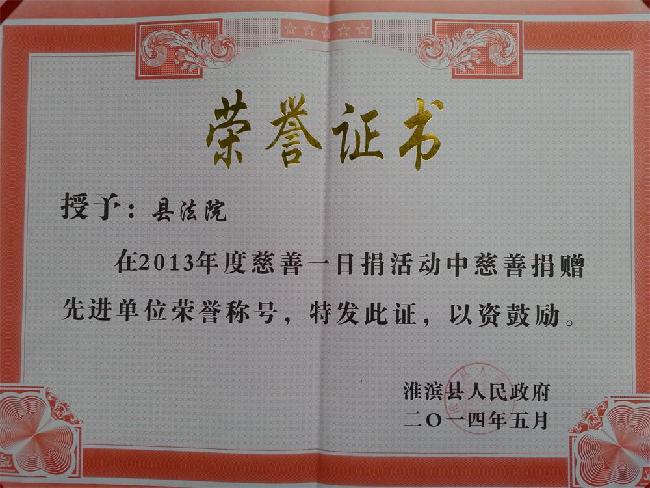 荣誉证书
授予：县法院
在2013年度慈善一日捐活动中慈善捐赠
先进单位荣誉称号，特发此证，以资鼓励。
淮滨县人民政府
二〇一四年五月